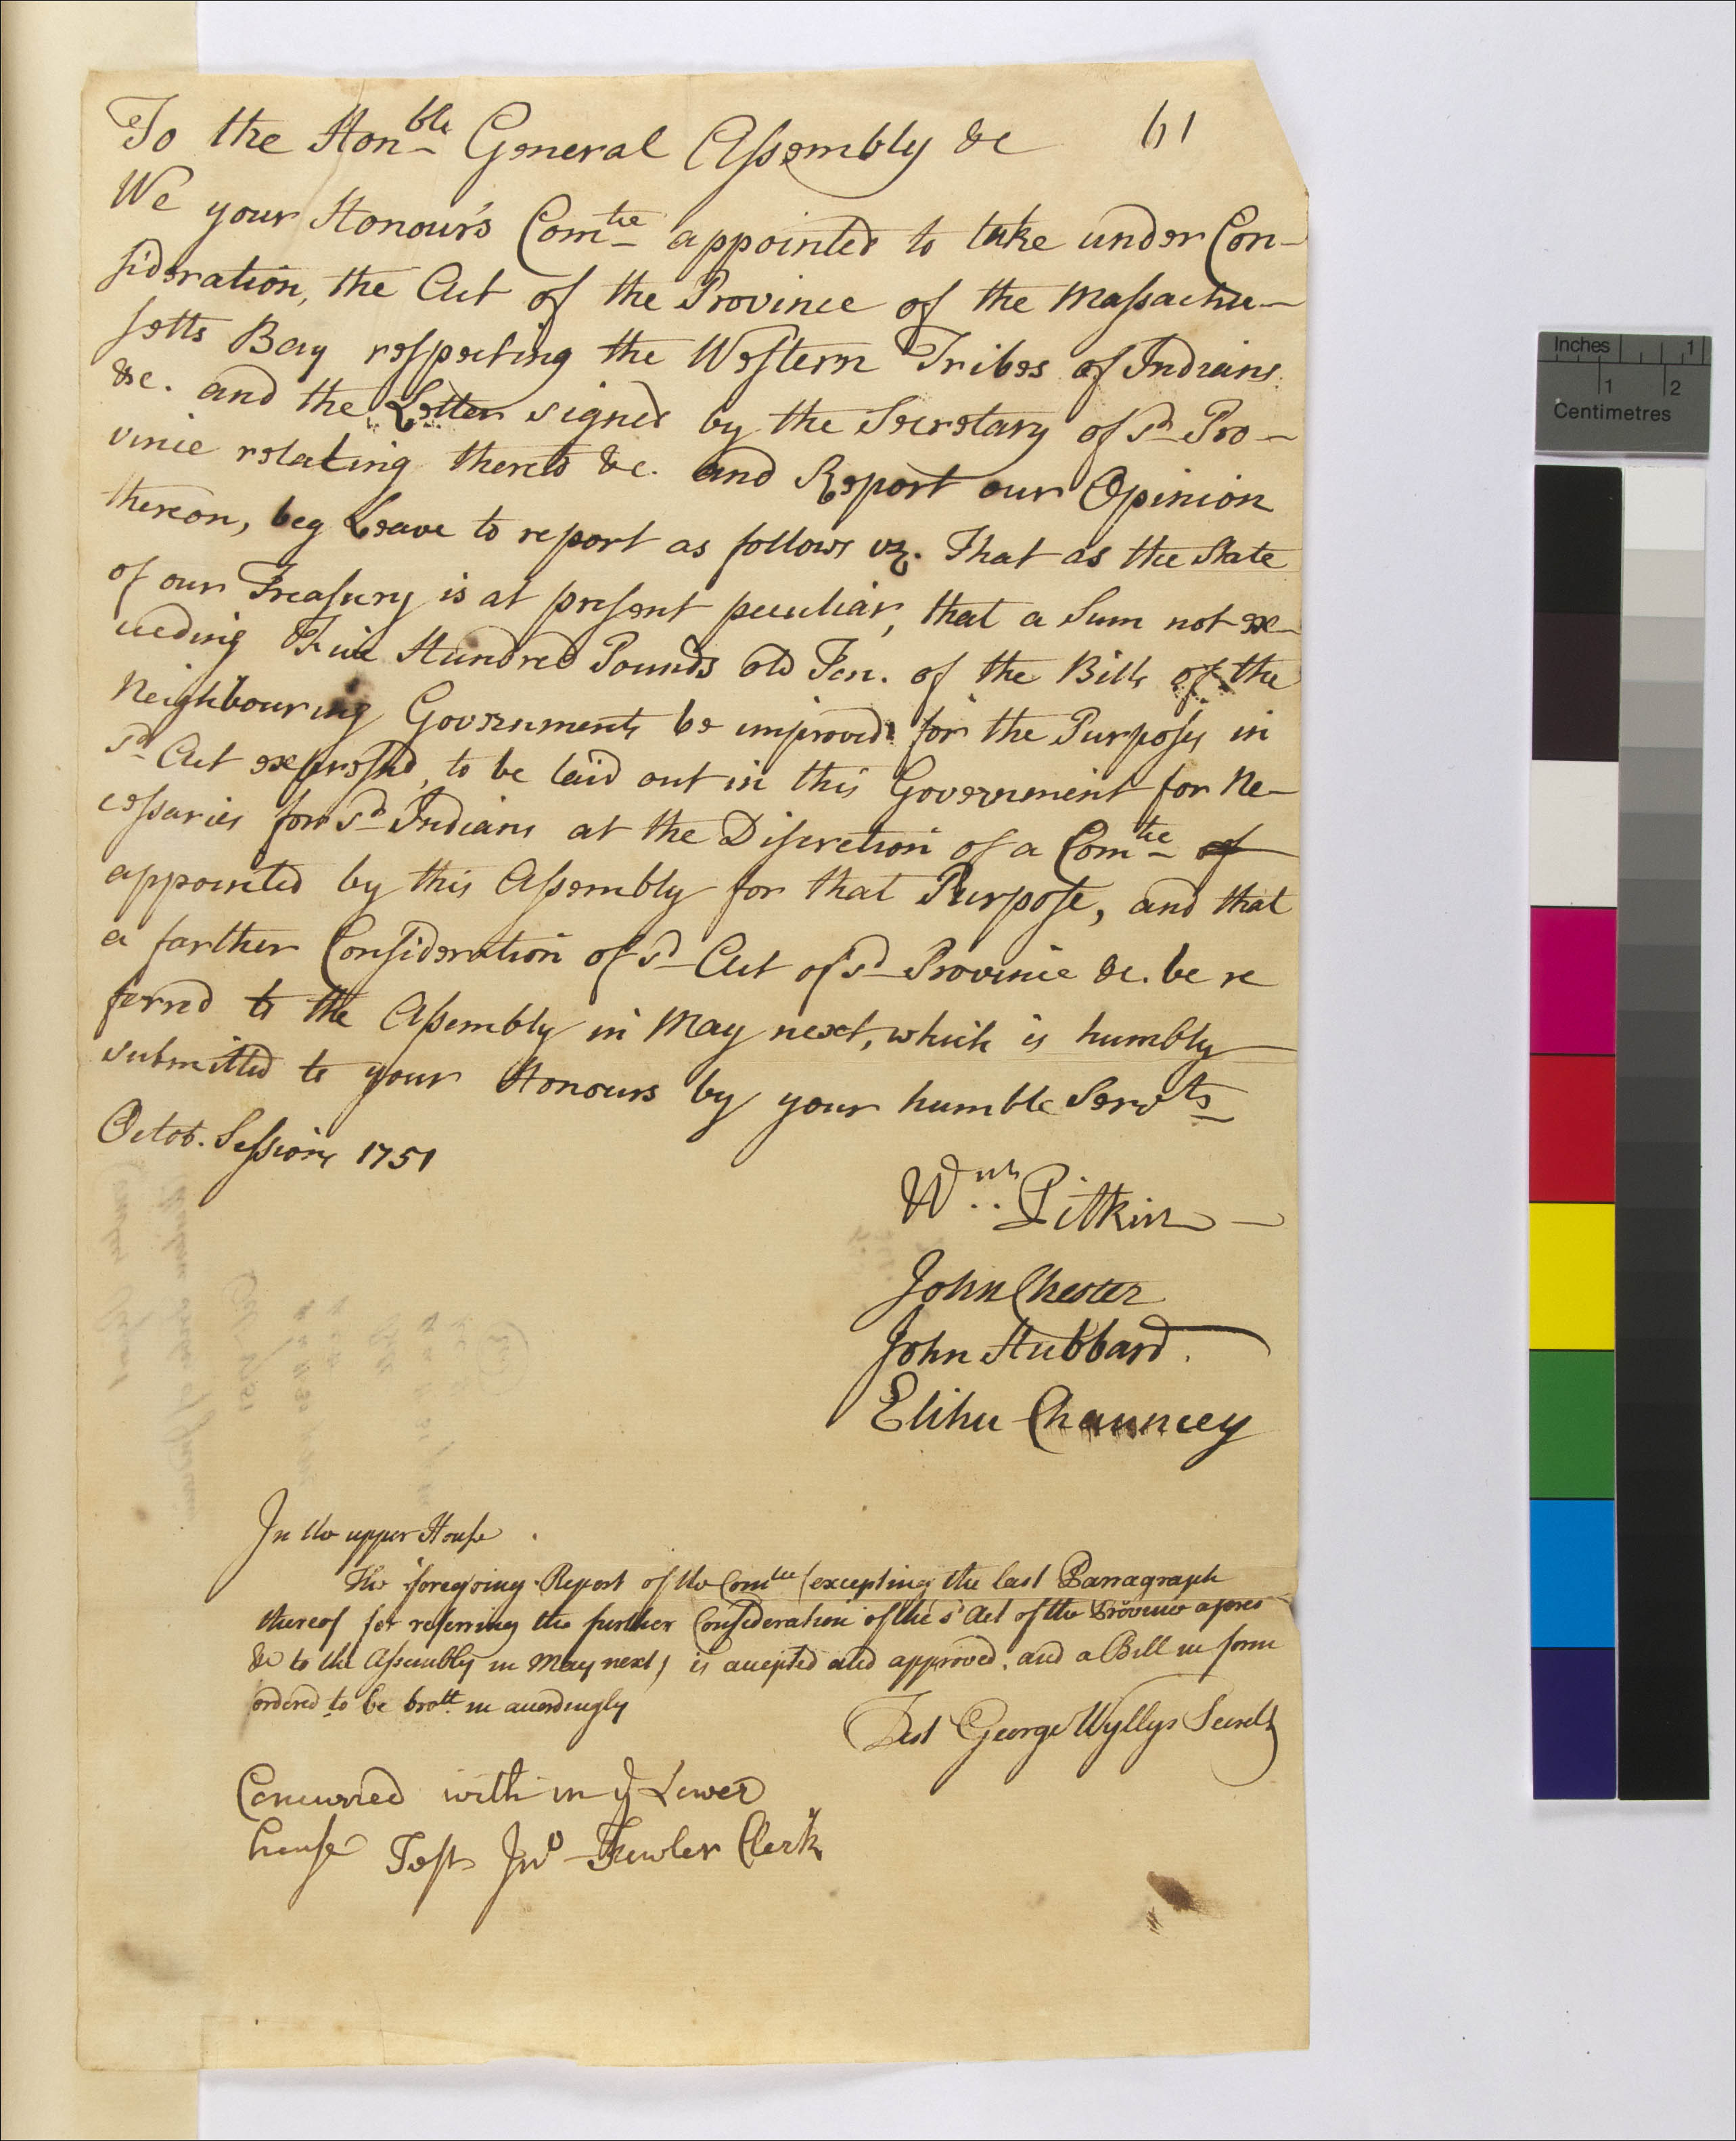 To the Hon.ble General Assembly &c 61
We your Honour's Com.tee appointed to take under Con-
sideration, the Act of the Province of the Massachu-
setts Bay respecting the Western Tribes of Indians
&c. and the Letter signed by the Secretary of s.d Pro-
vince relating thereto &c. and Report our Opinion
thereon, beg Leave to report as follows vz. That as the State
of our Treasury is at present peculiar, that a Sum not ex-
ceeding Five Hundred Pounds old Ten. of the Bills of the
Neighbouring Governments be improved for the Purposes in
s.d Act expressed, to be laid out in this Government for Ne-
cessaries for s.d Indians at the Discretion of a Com.tee of
appointed by this Assembly for that Purpose, and that
a farther Consideration of s.d Act of s.d Province &c. be re
ferred to the Assembly in May next, which is humbly
submitted to your Honours by your humble Serv.ts
Octob. Sessions 1751
W.m Pitkin
John Chester
John Hubbard.
Elihu Chauncey
In the upper House
The foregoing Report of the Com.tee (excepting the last Parragraph
thereof for referring the further Consideration of the s.d Act of the Province afores.d
&c to the Assembly in May next) is accepted and approved. and a Bill in form
ordered to be bro.tt in accordingly
Test George Wyllys Secret.y
Concurred with in y.e Lower
house Test Jn.o Fowler Clerk
Inches 1
1 2
Centimetres